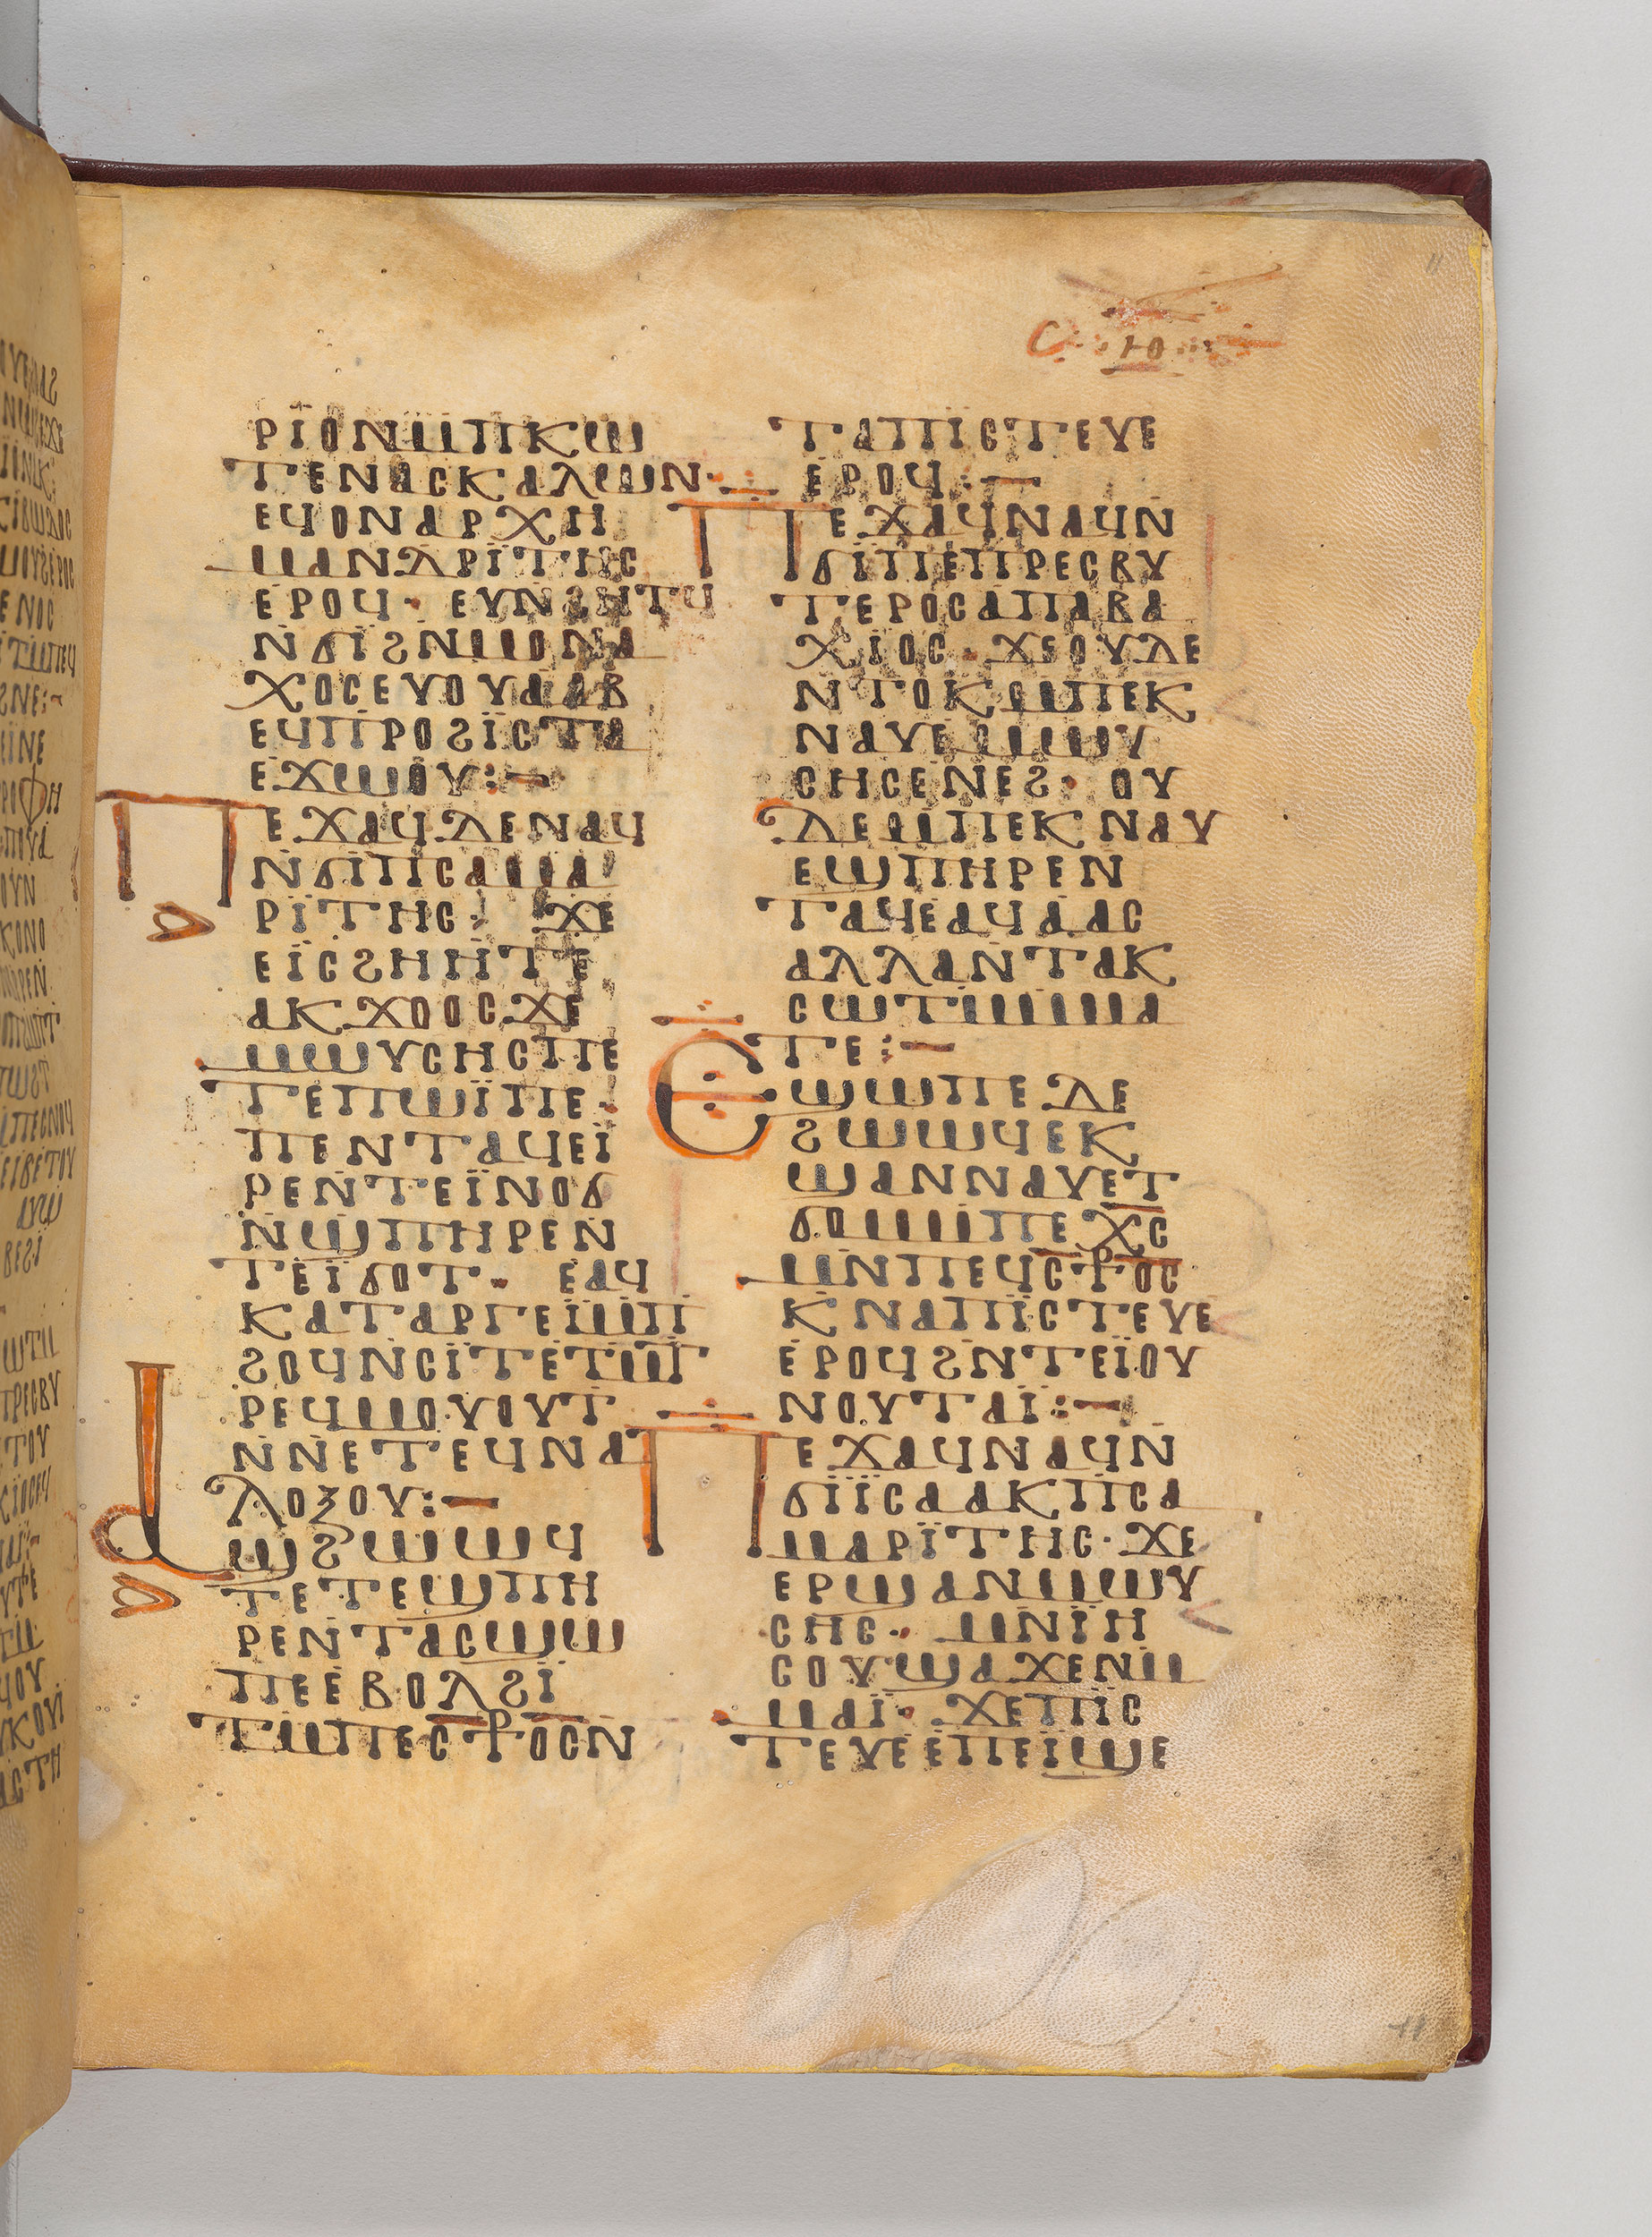 ⲓⲑ
ⲣⲓⲟⲛⲙⲡⲕⲱ
ⲧⲉⲛⲁⲥⲕⲁⲗⲱⲛ·
ⲉϥⲟⲛⲁⲣⲭⲏ
ⲙⲁⲛⲇⲣⲓⲧⲏⲥ
ⲉⲣⲟϥ· ⲉⲩⲛϩⲏⲧϥ
ⲛϭⲓϩⲛⲙⲟⲛⲁ
ⲭⲟⲥⲉⲩⲟⲩⲁⲁⲃ
ⲉϥⲡⲣⲟϩⲓⲥⲧⲁ
ⲉϫⲱⲟⲩ:—
ⲡⲉϫⲁϥⲇⲉⲛⲁϥ
ⲛϭⲓⲡⲥⲁⲙⲁ
ⲣⲓⲧⲏⲥ· ϫⲉ
ⲉⲓⲥϩⲏⲏⲧⲉ
ⲁⲕϫⲟⲟⲥϫⲉ
ⲙⲱⲩⲥⲏⲥⲡⲉ
ⲧⲉⲡⲱⲓⲡⲉ·
ⲡⲉⲛⲧⲁϥⲉⲓ
ⲣⲉⲛⲧⲉⲓⲛⲟϭ
ⲛϣⲡⲏⲣⲉⲛ
ⲧⲉⲓϭⲟⲧ· ⲉⲁϥ
ⲕⲁⲧⲁⲣⲅⲉⲓⲙⲡ
ϩⲟϥⲛⲥⲓⲧⲉⲧⲙⲧ
ⲣⲉϥⲙⲟⲩⲟⲩⲧ
ⲛⲛⲉⲧⲉϥⲛⲁ
ⲗⲟⲝⲟⲩ:—
ⲁϣϩⲱⲱϥ
ⲧⲉⲧⲉϣⲡⲏ
ⲣⲉⲛⲧⲁⲥϣⲱ
ⲡⲉⲉⲃⲟⲗϩⲓ
ⲧⲙⲡⲉⲥ⳨ⲟⲥⲛ
ⲧⲁⲡⲓⲥⲧⲉⲩⲉ
ⲉⲣⲟϥ:—
ⲡⲉϫⲁϥⲛⲁϥⲛ
ϭⲓⲡⲉⲡⲣⲉⲥⲃⲩ
ⲧⲉⲣⲟⲥⲁⲡⲁⲃⲁ
ⲭⲓⲟⲥ· ϫⲉⲟⲩⲇⲉ
ⲛⲧⲟⲕⲟⲙⲡⲉⲕ
ⲛⲁⲩⲉⲙⲱⲩ
ⲥⲏⲥⲉⲛⲉϩ· ⲟⲩ
ⲇⲉⲙⲡⲉⲕⲛⲁⲩ
ⲉϣⲡⲏⲣⲉⲛ
ⲧⲁϥⲉⲁϥⲁⲁⲥ
ⲁⲗⲗⲁⲛⲧⲁⲕ
ⲥⲱⲧⲙⲙⲙⲁ
ⲧⲉ:—
ⲉϣⲱⲡⲉⲇⲉ
ϩⲱⲱϥⲉⲕ
ϣⲁⲛⲛⲁⲩⲉⲧ
ϭⲟⲙⲙⲡⲉⲭⲥ
ⲙⲛⲡⲉϥⲥ⳨ⲟⲥ
ⲕⲛⲁⲡⲓⲥⲧⲉⲩⲉ
ⲉⲣⲟϥϩⲛⲧⲉⲓⲟⲩ
ⲛⲟⲩⲧⲁⲓ:—
ⲡⲉϫⲁϥⲛⲁϥⲛ
ϭⲓⲓⲥⲁⲁⲕⲡⲥⲁ
ⲙⲁⲣⲓⲧⲏⲥ· ϫⲉ
ⲉⲣϣⲁⲛⲙⲱⲩ
ⲥⲏⲥ· ⲙⲛⲓⲏ
ⲥⲟⲩϣⲁϫⲉⲛⲙ
ⲙⲁⲓ· ϫⲉⲡⲓⲥ
ⲧⲉⲩⲉⲉⲡⲉⲓϣⲉ